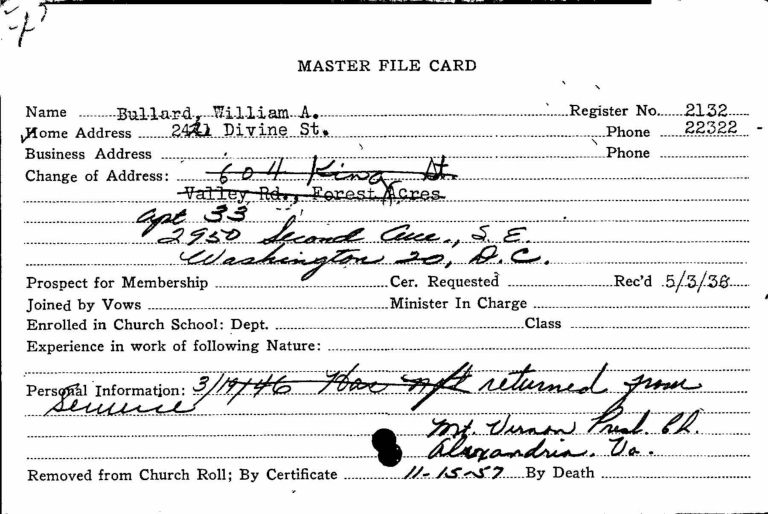 MASTER FILE CARD
Name Bullard, William A. Register No. 2132
Home Address Divine St. Phone 22322
Business Address Phone
Change of Address: 604 King St.
Valley Rd., Forest Acres
Apt 33
2950 Second Ave., S.E.
Washington 20, D.C.
Prospect for Membership Cer. Requested Rec'd 5/3/36
Joined by Vows Minister In Charge
Enrolled in Church School: Dept. Class
Experience in work of following Nature:
Personal Information: 3/19/46 Has not returned from
Service
Mt. Vernon Presb. Ch.
Alexandria. Va.
Removed from Church Roll; By Certificate 11-15-57 By Death